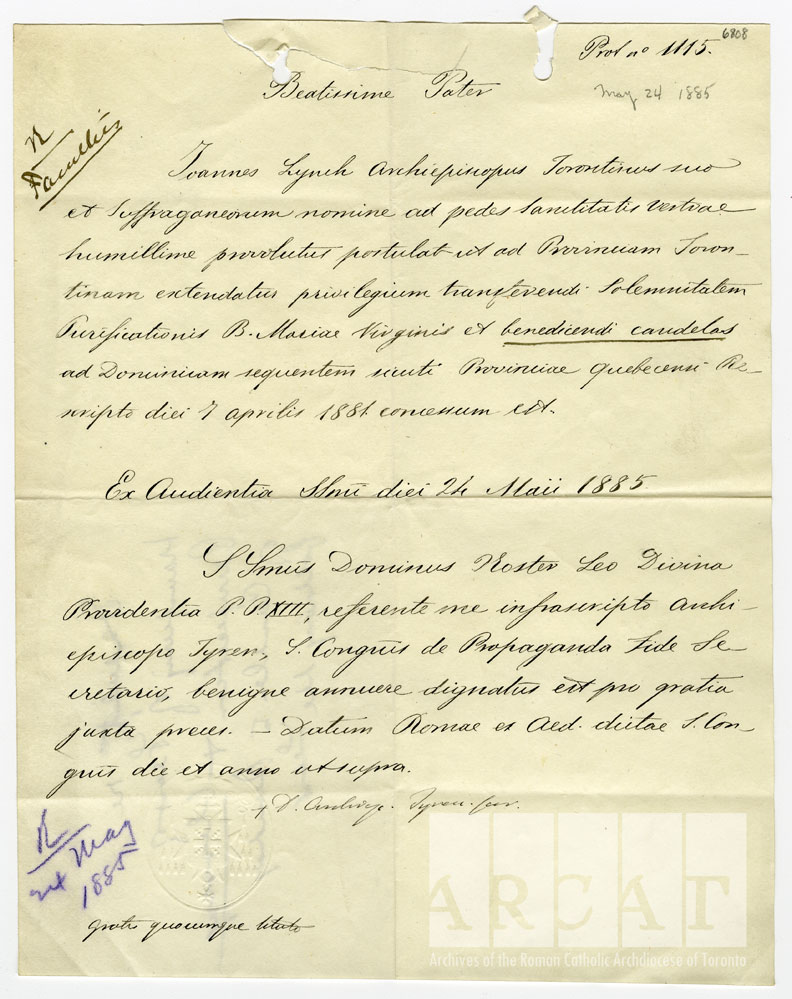 6808
Prot nº 1115.
Beatissime Pater
May 24 1885
R
Facultés
Joannes Lynch Archiepiscopus Torontinus suo
et Suffraganeorum nomine ad pedes Sanctitatis Vestrae
humillime provolutus postulat ut ad Provinciam Toron-
tinam extendatur privilegium transferendi Solemnitatem
Purificationis B. Mariae Virginis et benedicendi candelas
ad Dominicam sequentem sicuti Provinciae Quebecensi Re-
scripto diei 7 aprilis 1881 concessum est.
Ex Audientia SSmi diei 24 Maii 1885
SSmus Dominus Noster Leo Divina
Providentia P. P. XIII, referente me infrascripto Archi-
episcopo Tyren, S. Congnis de Propaganda Fide Se-
cretario, benigne annuere dignatus est pro gratia
juxta preces. — Datum Romae ex Aed. dictae S. Con-
gnis die et anno ut supra.
+ D. Archiep. Tyren. Secr.
R
24 May
1885
gratis quocumque titulo
ARCAT
Archives of the Roman Catholic Archdiocese of Toronto